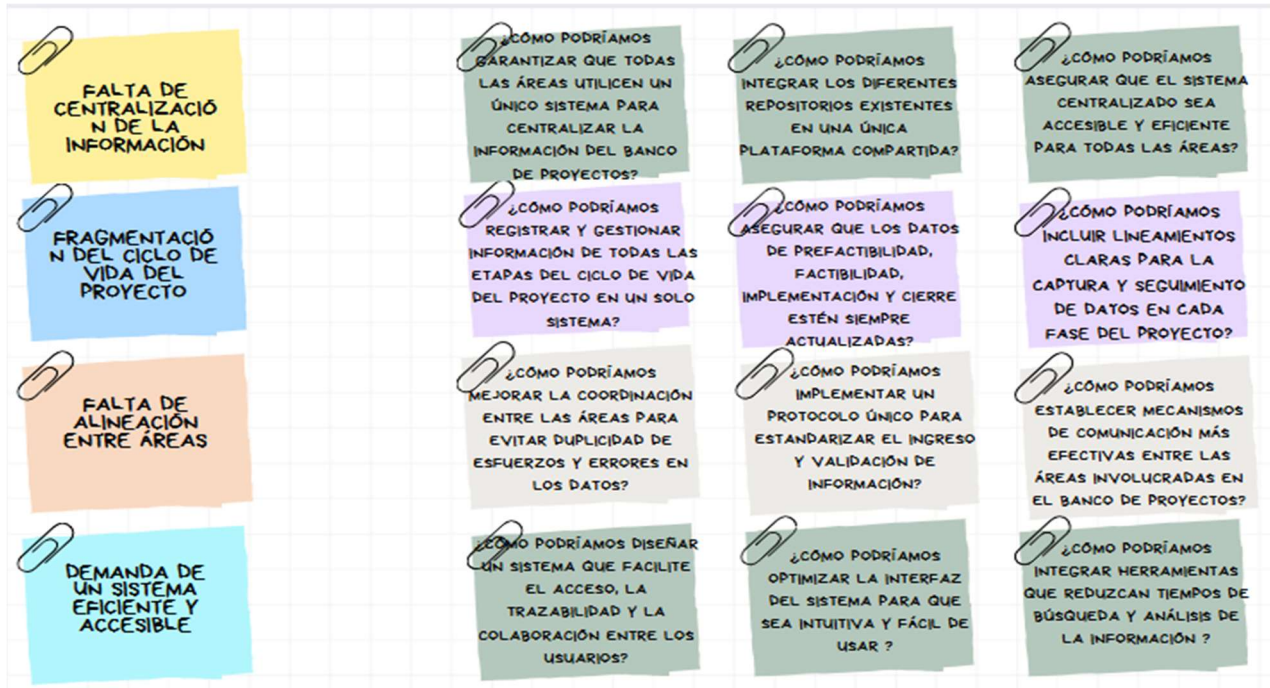 FALTA DE
CENTRALIZACIÓ
N DE LA
INFORMACIÓN
¿CÓMO PODRÍAMOS
GARANTIZAR QUE TODAS
LAS ÁREAS UTILICEN UN
ÚNICO SISTEMA PARA
CENTRALIZAR LA
INFORMACIÓN DEL BANCO
DE PROYECTOS?
¿CÓMO PODRÍAMOS
INTEGRAR LOS DIFERENTES
REPOSITORIOS EXISTENTES
EN UNA ÚNICA
PLATAFORMA COMPARTIDA?
¿CÓMO PODRÍAMOS
ASEGURAR QUE EL SISTEMA
CENTRALIZADO SEA
ACCESIBLE Y EFICIENTE
PARA TODAS LAS ÁREAS?
FRAGMENTACIÓ
N DEL CICLO DE
VIDA DEL
PROYECTO
¿CÓMO PODRÍAMOS
REGISTRAR Y GESTIONAR
INFORMACIÓN DE TODAS LAS
ETAPAS DEL CICLO DE VIDA
DEL PROYECTO EN UN SOLO
SISTEMA?
¿CÓMO PODRÍAMOS
ASEGURAR QUE LOS DATOS
DE PREFACTIBILIDAD,
FACTIBILIDAD,
IMPLEMENTACIÓN Y CIERRE
ESTÉN SIEMPRE
ACTUALIZADAS?
¿CÓMO PODRÍAMOS
INCLUIR LINEAMIENTOS
CLARAS PARA LA
CAPTURA Y SEGUIMIENTO
DE DATOS EN CADA
FASE DEL PROYECTO?
FALTA DE
ALINEACIÓN
ENTRE ÁREAS
¿CÓMO PODRÍAMOS
MEJORAR LA COORDINACIÓN
ENTRE LAS ÁREAS PARA
EVITAR DUPLICIDAD DE
ESFUERZOS Y ERRORES EN
LOS DATOS?
¿CÓMO PODRÍAMOS
IMPLEMENTAR UN
PROTOCOLO ÚNICO PARA
ESTANDARIZAR EL INGRESO
Y VALIDACIÓN DE
INFORMACIÓN?
¿CÓMO PODRÍAMOS
ESTABLECER MECANISMOS
DE COMUNICACIÓN MÁS
EFECTIVAS ENTRE LAS
ÁREAS INVOLUCRADAS EN
EL BANCO DE PROYECTOS?
DEMANDA DE
UN SISTEMA
EFICIENTE Y
ACCESIBLE
¿CÓMO PODRÍAMOS DISEÑAR
UN SISTEMA QUE FACILITE
EL ACCESO, LA
TRAZABILIDAD Y LA
COLABORACIÓN ENTRE LOS
USUARIOS?
¿CÓMO PODRÍAMOS
OPTIMIZAR LA INTERFAZ
DEL SISTEMA PARA QUE
SEA INTUITIVA Y FÁCIL DE
USAR ?
¿CÓMO PODRÍAMOS
INTEGRAR HERRAMIENTAS
QUE REDUZCAN TIEMPOS DE
BÚSQUEDA Y ANÁLISIS DE
LA INFORMACIÓN ?